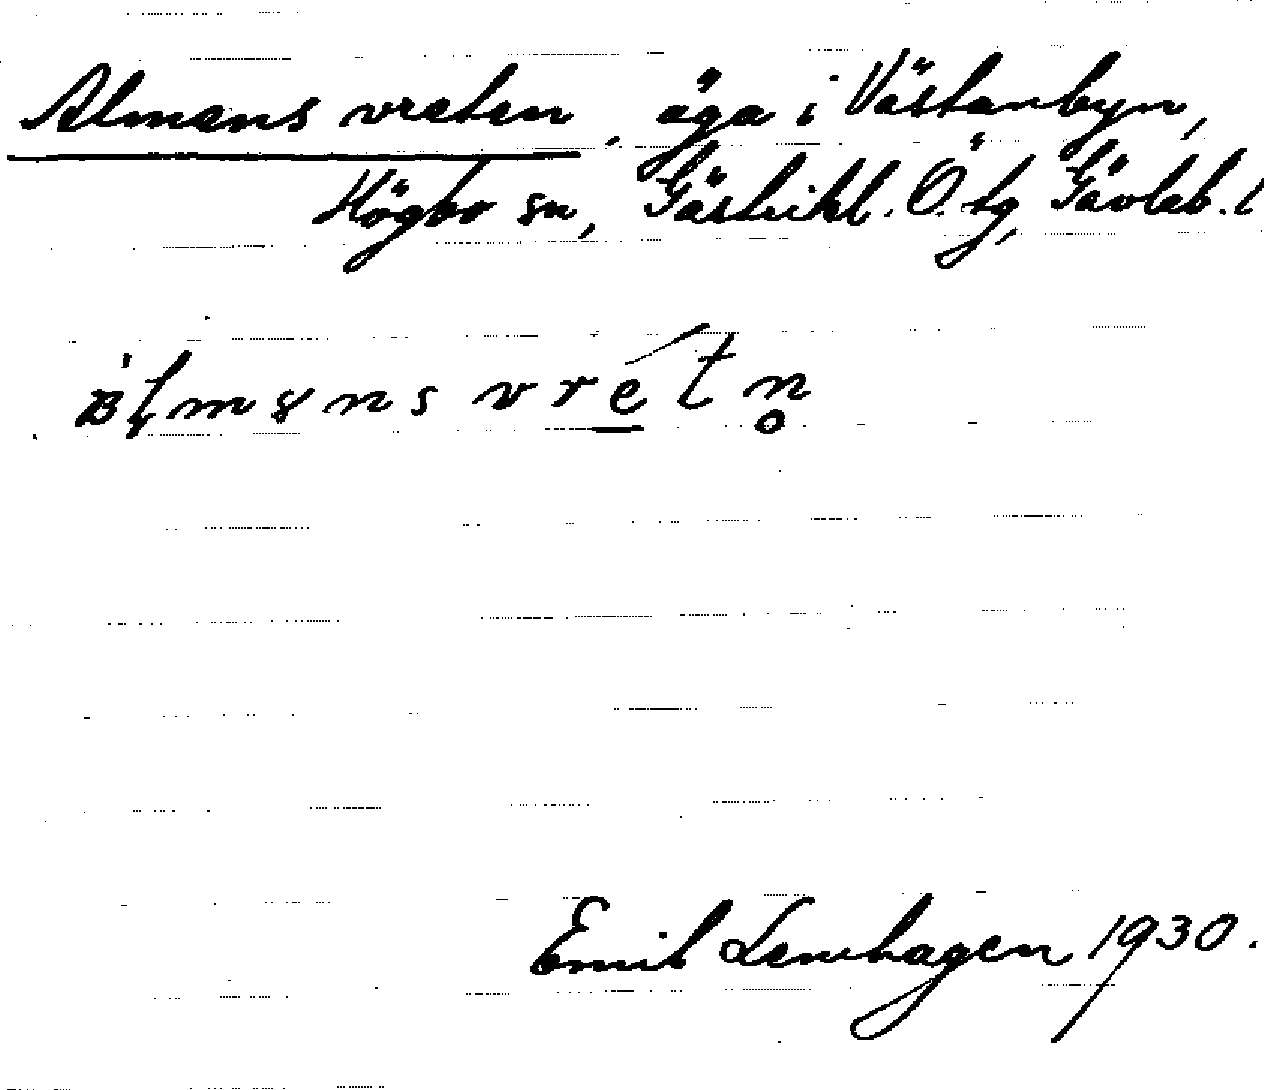 Almans vreten, äga i Västanbyn,
Högbo sn, Gästrikl. Ö. tg, Gävleb. l
vretn̥
Emil Lenhagen 1930.